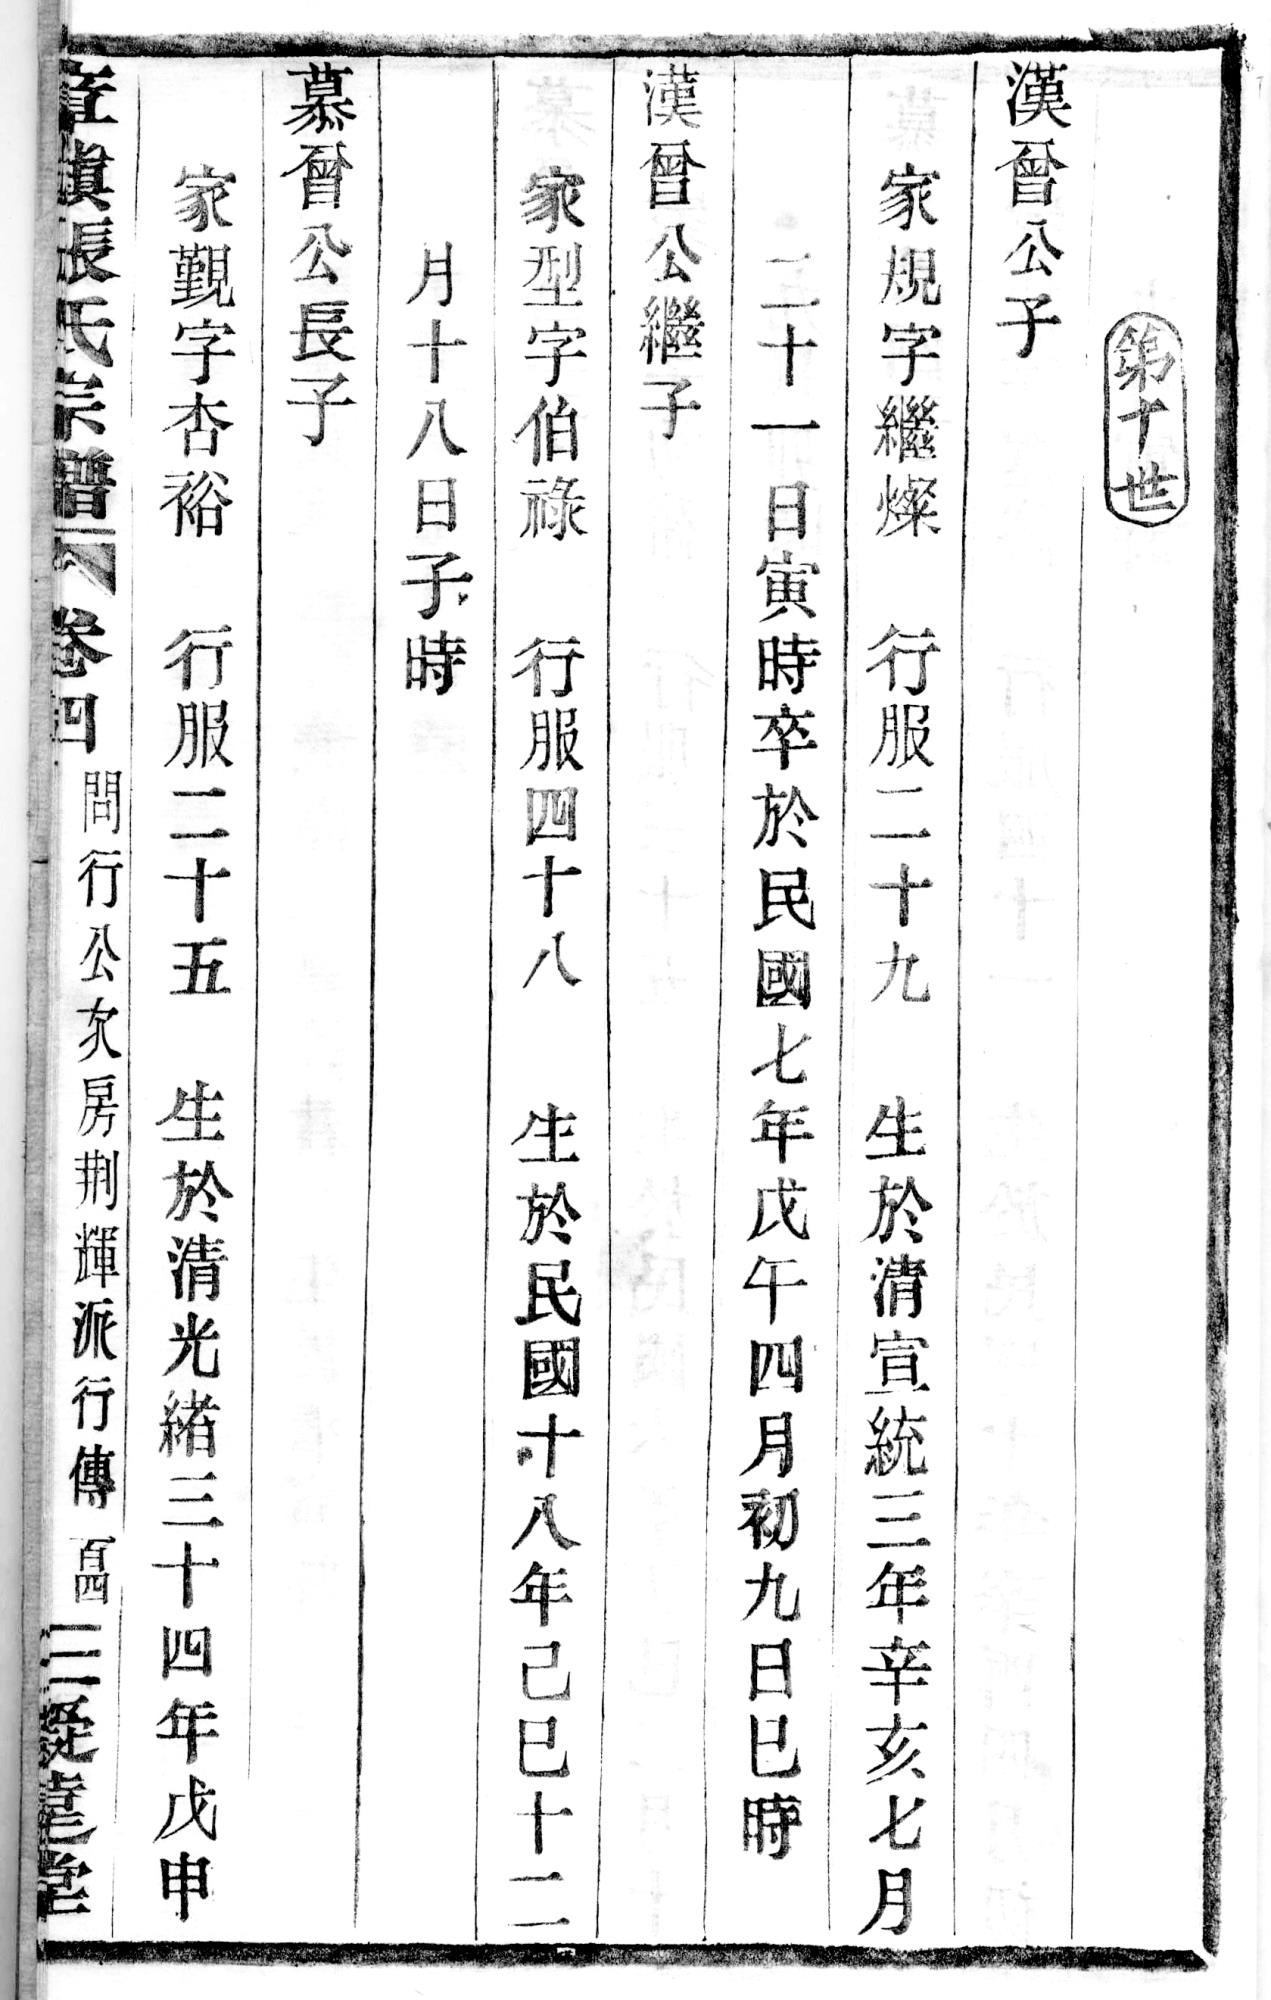 第十世
漢曾公子
家規字繼燦 行服二十九 生於清宣統三年辛亥七月
二十一日寅時卒於民國七年戊午四月初九日巳時
漢曾公繼子
家型字伯祿 行服四十八 生於民國十八年己巳十二
月十八日子時
慕曾公長子
家覲字杏裕 行服二十五 生於清光緒三十四年戊申
章鎮張氏宗譜 卷四 問行公次房荆輝派行傳 百四 三